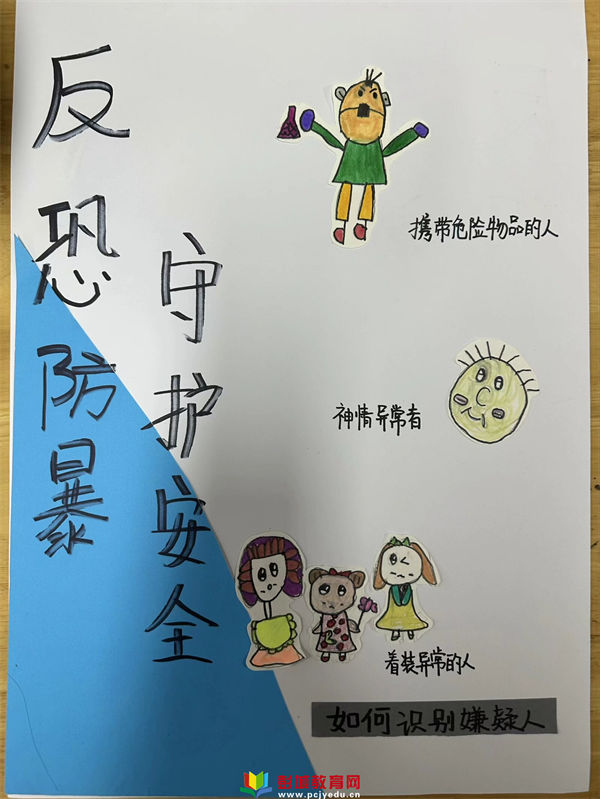 反恐防暴
守护安全
携带危险物品的人
神情异常者
着装异常的人
如何识别嫌疑人
www.pcjyedu.cn